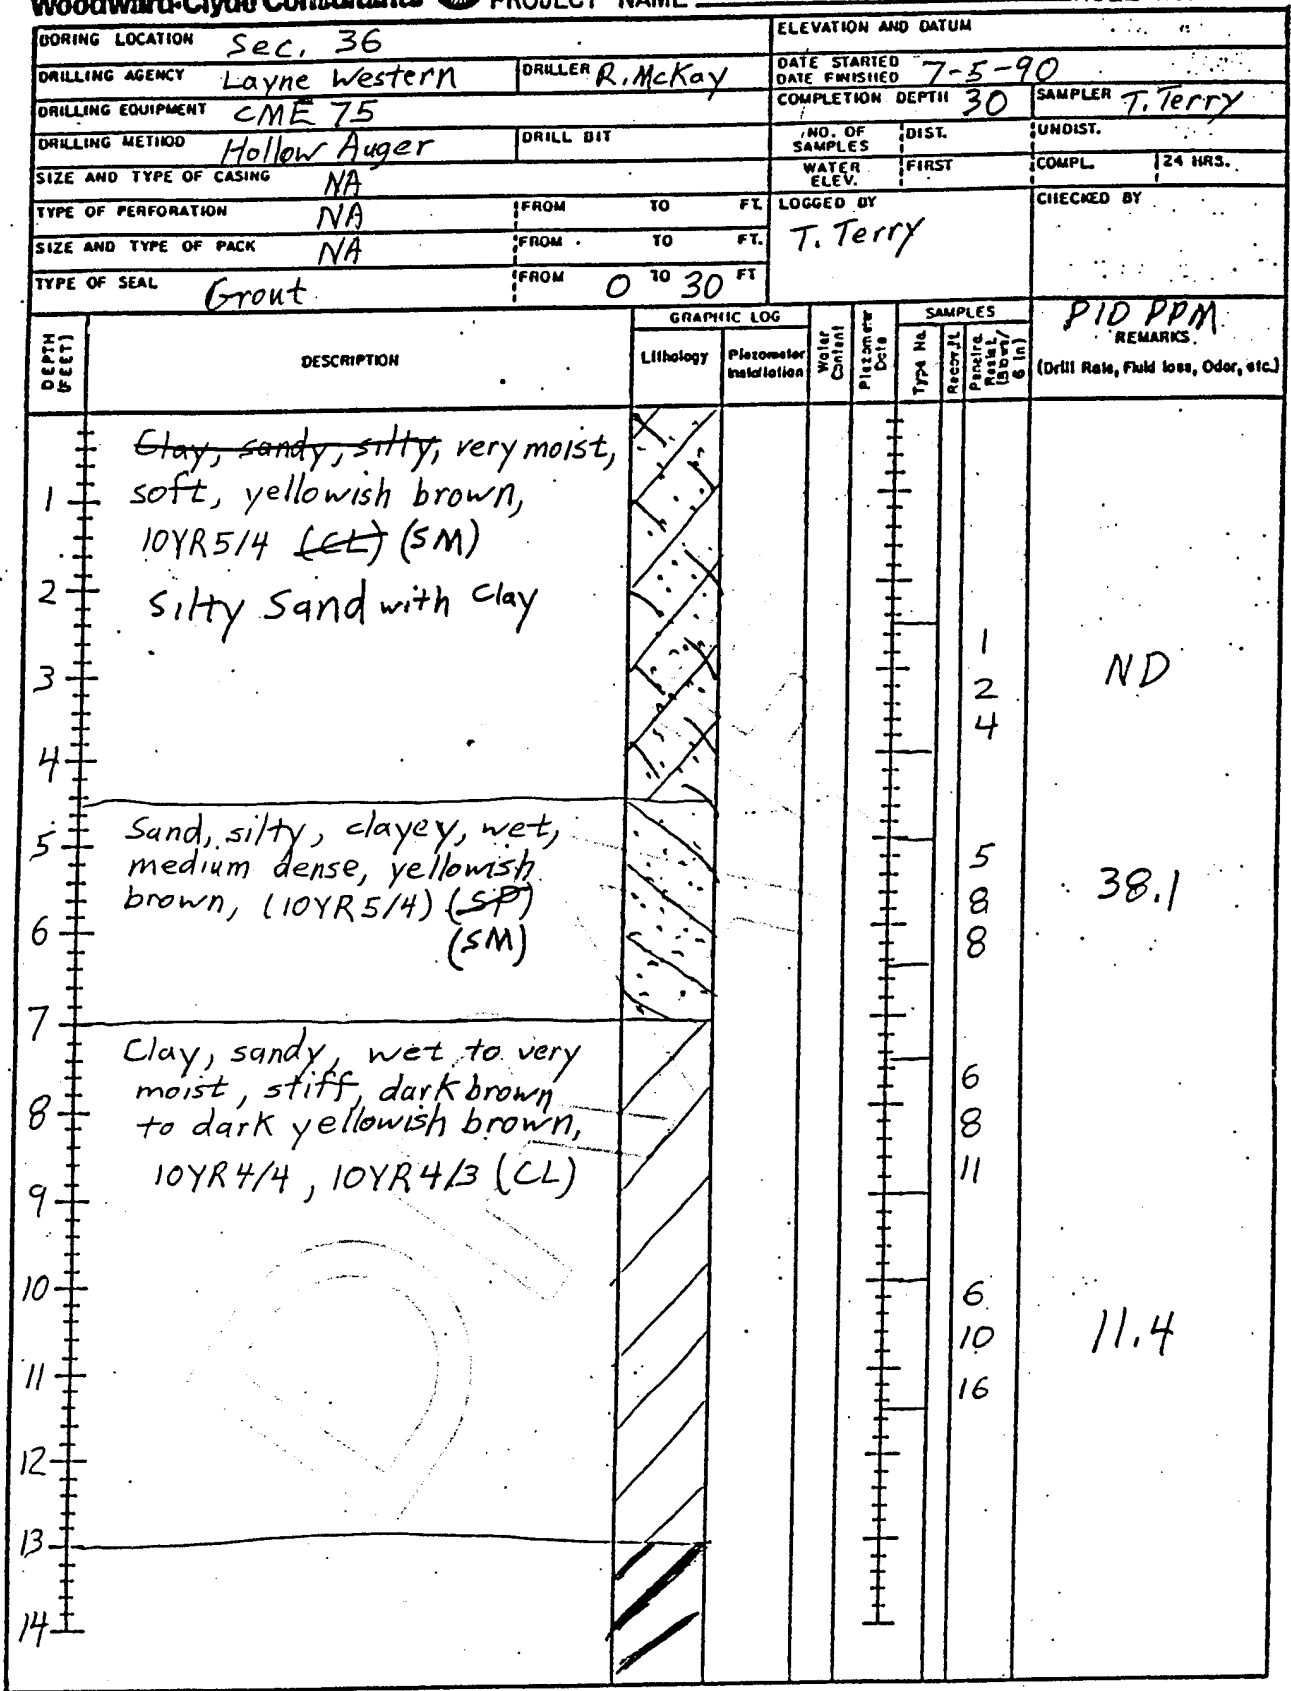 Woodward-Clyde Consultants PROJECT NAME
BORING LOCATION Sec. 36
ELEVATION AND DATUM
DRILLING AGENCY Layne Western DRILLER R. McKay
DATE STARTED
DATE FINISHED 7-5-90
DRILLING EQUIPMENT CME 75
COMPLETION DEPTH 30 SAMPLER T. Terry
DRILLING METHOD Hollow Auger DRILL BIT
NO. OF SAMPLES DIST. UNDIST.
SIZE AND TYPE OF CASING NA
WATER ELEV. FIRST COMPL. 24 HRS.
TYPE OF PERFORATION NA FROM TO FT.
LOGGED BY T. Terry CHECKED BY
SIZE AND TYPE OF PACK NA FROM TO FT.
TYPE OF SEAL Grout FROM 0 TO 30 FT
DEPTH (FEET)
DESCRIPTION
GRAPHIC LOG
Lithology
Piezometer Installation
Water Content
Piezometer Data
SAMPLES
Type No.
Recov. ft.
Penetra. Resist. (Blows/ 6 in)
PID PPM
REMARKS
(Drill Rate, Fluid loss, Odor, etc.)
Clay, sandy, silty, very moist,
1 soft, yellowish brown,
10YR5/4 (CL) (SM)
2 Silty Sand with Clay
1
3 2 ND
4
4
5 Sand, silty, clayey, wet, 5
medium dense, yellowish 38.1
brown, (10YR5/4) (SP) 8
6 (SM) 8
7
Clay, sandy, wet to very 6
moist, stiff, dark brown
8 to dark yellowish brown, 8
10YR4/4, 10YR4/3 (CL) 11
9
10 6
10 11.4
11 16
12
13
14
DRAFT